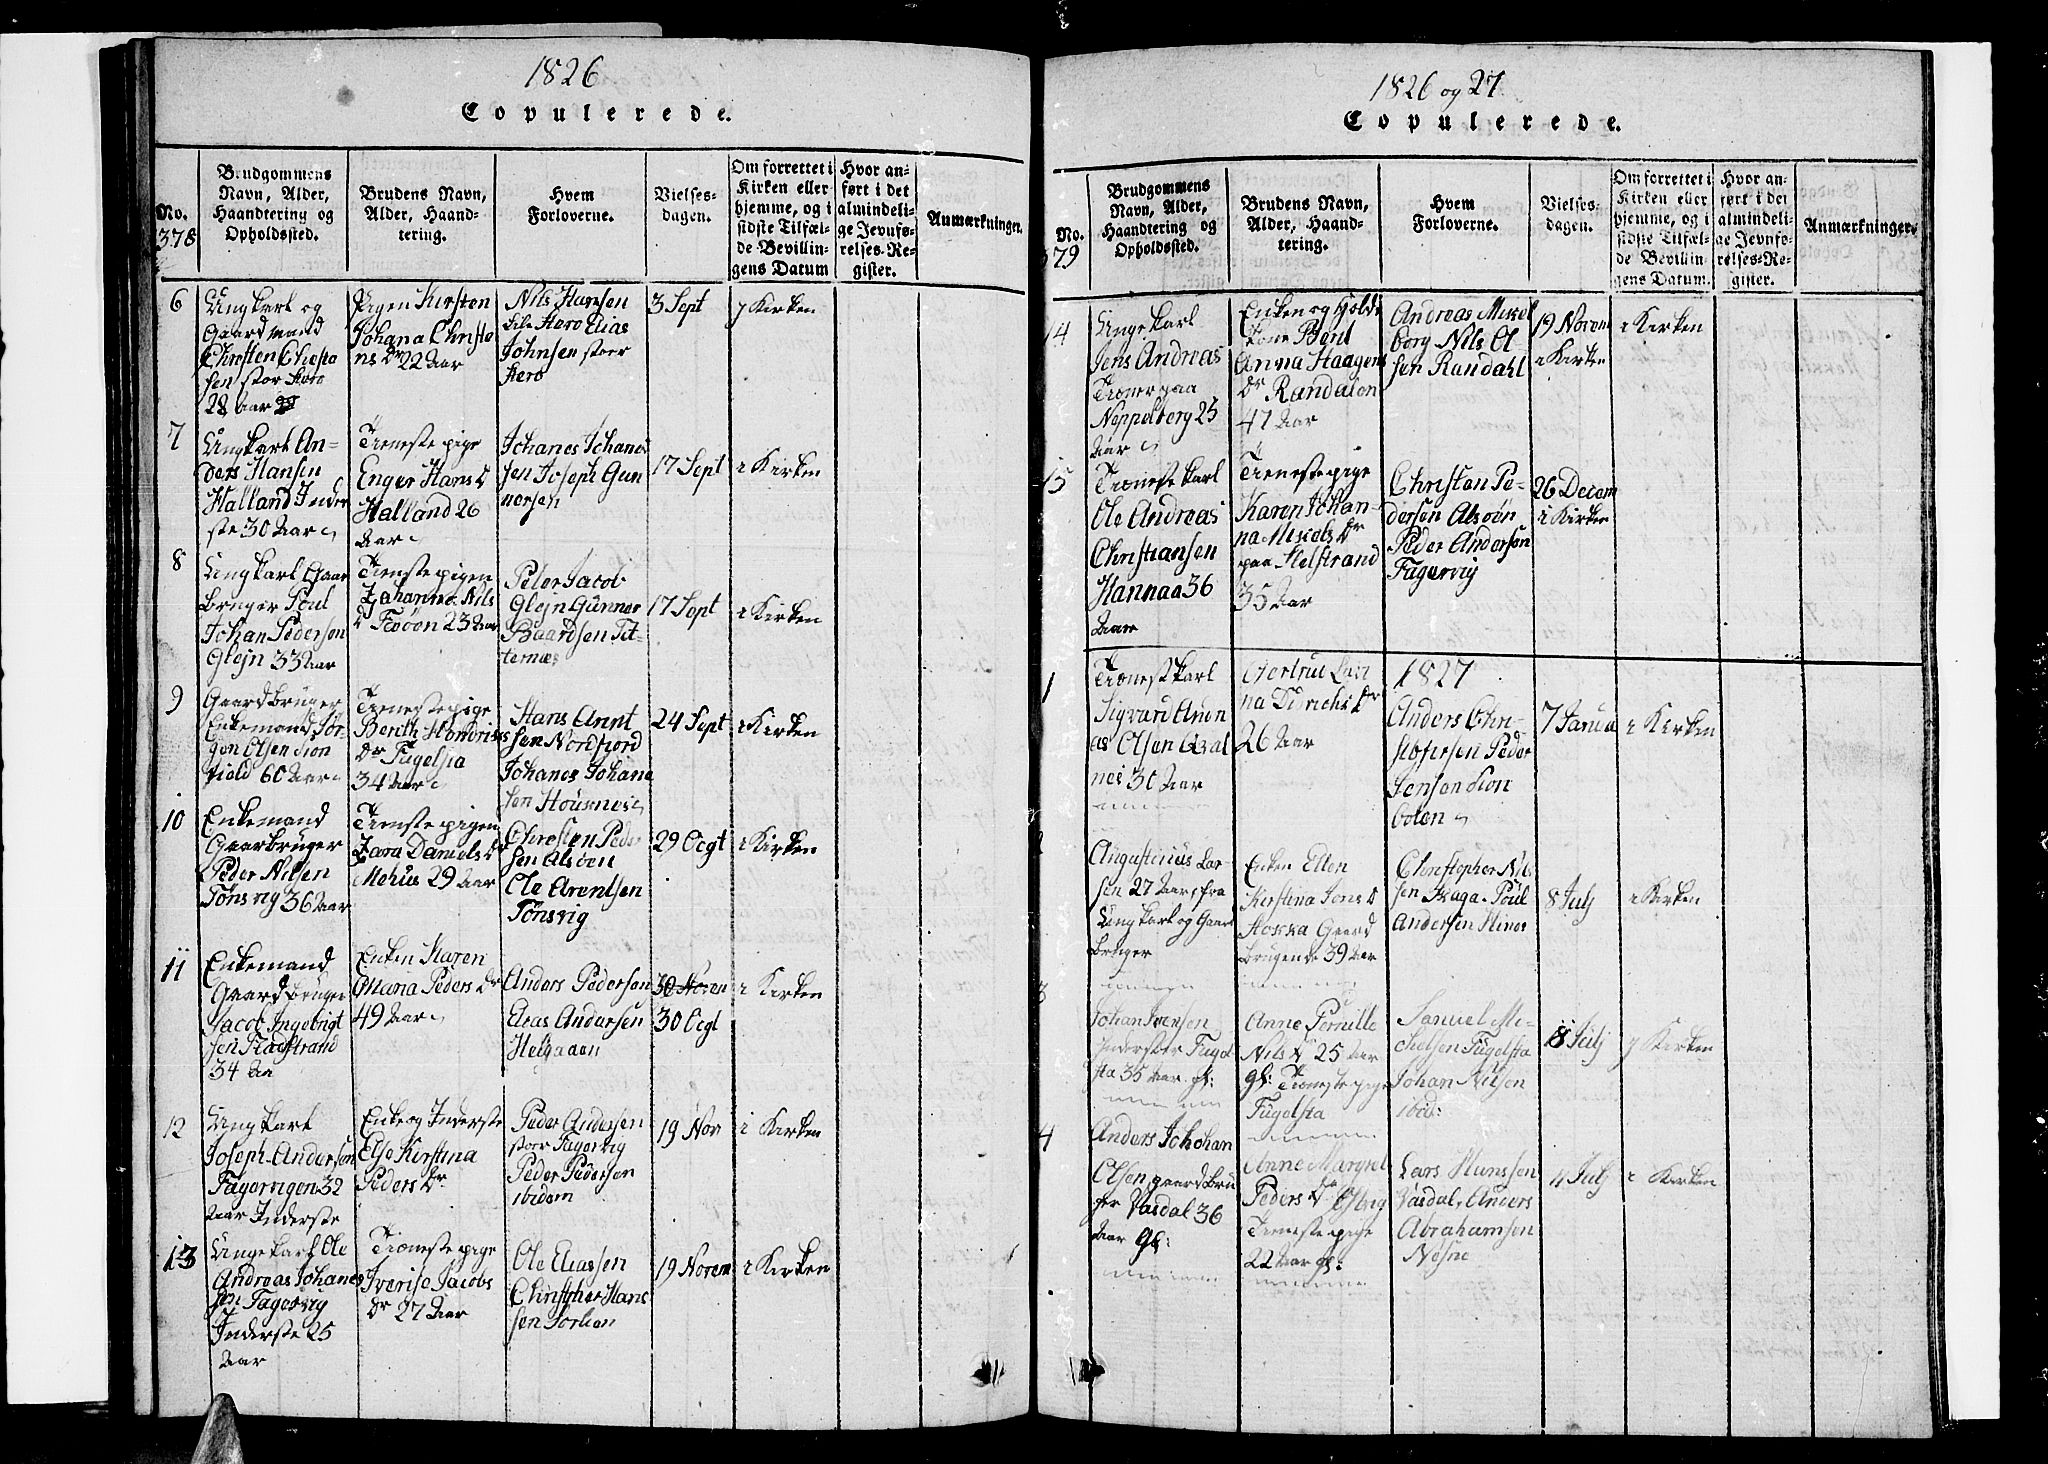 1826
Copulerede.
No.
378
Brudgommens
Navn, Alder,
Haandtering og
Opholdssted.
Brudens Navn,
Alder, Haand-
tering.
Hvem
Forloverne.
Vielses-
dagen.
Om forrettet i
Kirken eller
hjemme, og i
sidste Tilfæl-
de Bevillin-
gens Datum
Hvor an-
ført i det
almindeli-
ge Jevnfø-
relses-Re-
gister.
Anmærkninger.
6
Ungkarl og
Gaardmand
Christen Christa
sen stor Hero
28 Aar
Pigen Kirsten
Johana Christo
ns Dr 22 Aar
Nils Hansen
lile Hero Elias
Johnsen stoer
Hero
3 Sept
j Kirken
7
Ungkarl An-
ders Hansen
Halland Inder
ste 30 Aar
Tieneste pige
Enger Hans D
Halland 26
Aar
Johanes Johanes
sen Joseph Gun
nersen
17 Sept
i Kirken
8
Ungkarl Gaar
bruger Poul
Johan Pedersen
Glejn 33 Aar
Tieneste pigen
Johanna Nils
D Feøøn 23 Aar
Peter Jacob
Glejn Gunner
Baardsen Tit-
ternæs
17 Sept
i Kirken
9
Gaardbruger
Enkemand Jør
gen Olsen Sion
field 60 Aar
Tieneste pige
Berith Hendriks
Dr Fugelsta
34 Aar
Hans Arnt
sen Nordfjord
Johanes Johane
sen Housnes
24 Sept
i Kirken
10
Enkemand
Gaarbruger
Peder Nilsen
Tønsvig 36 Aar
Tieneste pigen
Zara Daniels Dr
Mehus 29 Aar
Christen Peder
sen Alsøen
Ole Arentsen
Tønsvig
29 Ocgt
i Kirken
11
Enkemand
Gaardbruger
Jacob Ingebrigt
sen Fladstrand
34 Aa
Enken Karen
Maria Peders Dr
49 Aar
Anders Pedersen
Elias Andersen
Helgaaen
30 Noven
30 Ocgt
i Kirken
12
Ungkarl
Joseph Andersen
Fagervigen 32
Aar Inderste
Enke og Inderste
Else Kirstina
Peders Dr
Peder Andersen
stor Fagervig
Peder Pedersen
ibidem
19 Nov
i Kirken
13
Ungekarl Ole
Andreas Johanes
sen Fagervig
Inderste 25
Aar
Tieneste pige
Iverise Jacobs
Dr 27 Aar
Ole Eliassen
Christopher Hans
sen Forlien
19 Novem
i Kirken
1826 og 27
Copulerede.
No.
379
Brudgommens
Navn, Alder,
Haandtering og
Opholdssted.
Brudens Navn,
Alder, Haand-
tering.
Hvem
Forloverne.
Vielses-
dagen.
Om forrettet i
Kirken eller
hjemme, og i
sidste Tilfæl-
de Bevillin-
gens Datum.
Hvor an-
ført i det
almindeli-
ge Jevnfø-
relses-Re-
gister.
Anmærkninger.
14
Ungekarl
Jens Andreas
Tioner paa
Neppelberg 25
Aar
Enken og Holde
Kone Bent
Anna Haagens
Dr Randalen
47 Aar
Andreas Mikel
borg Nils Ol
sen Randahl
19 Novem
i Kirken
i Kirken
15
Tieneste Karl
Ole Andreas
Christiansen
Hannaa 36
Aar
Tieneste pige
Karen Johan-
na Mikels Dr
paa Helstrand
35 Aar
Christen Pe-
dersen Alsøen
Peder Andersen
Fagervig
26 Decem
i Kirken
1
Tienestkarl
Sigvard Anon
as Olsen Hval
nes 30 Aar
Gertrut Lavi
na Didrichs Dr
26 Aar
1827
Anders Chri-
stofersen Peder
Jensen Sion
bolen
7 Janua
i Kirken
2
Augustinus Lar-
sen 27 Aar fra
Ungkarl og Gaar
bruger
Enken Ellen
Kirstina Jens D
Stokka Gaard
brugende 39 Aar
Christopher Nils
sen Haga. Poul
Andersen Hines
8 Julj
i Kirken
3
Johan Ivensen
Inderster Fugel
sta 35 Aar gl:
Anne Pernille
Nils D 25 Aar
gl: Tieneste pige
Fugelsta
Samuel Mi-
chelsen Fugelsta
Johan Nilsen
ibid:
18 Julj
j Kirken
4
Anders Johan
Olsen gaardbru
ger Vasdal 36
Aar gl:
Anne Margret
Peders D Esvig
Tieneste pige
22 Aar gl:
Lars Hanssen
Vasdal, Anders
Abrahamsen
Nesne
11 Julj
i Kirken